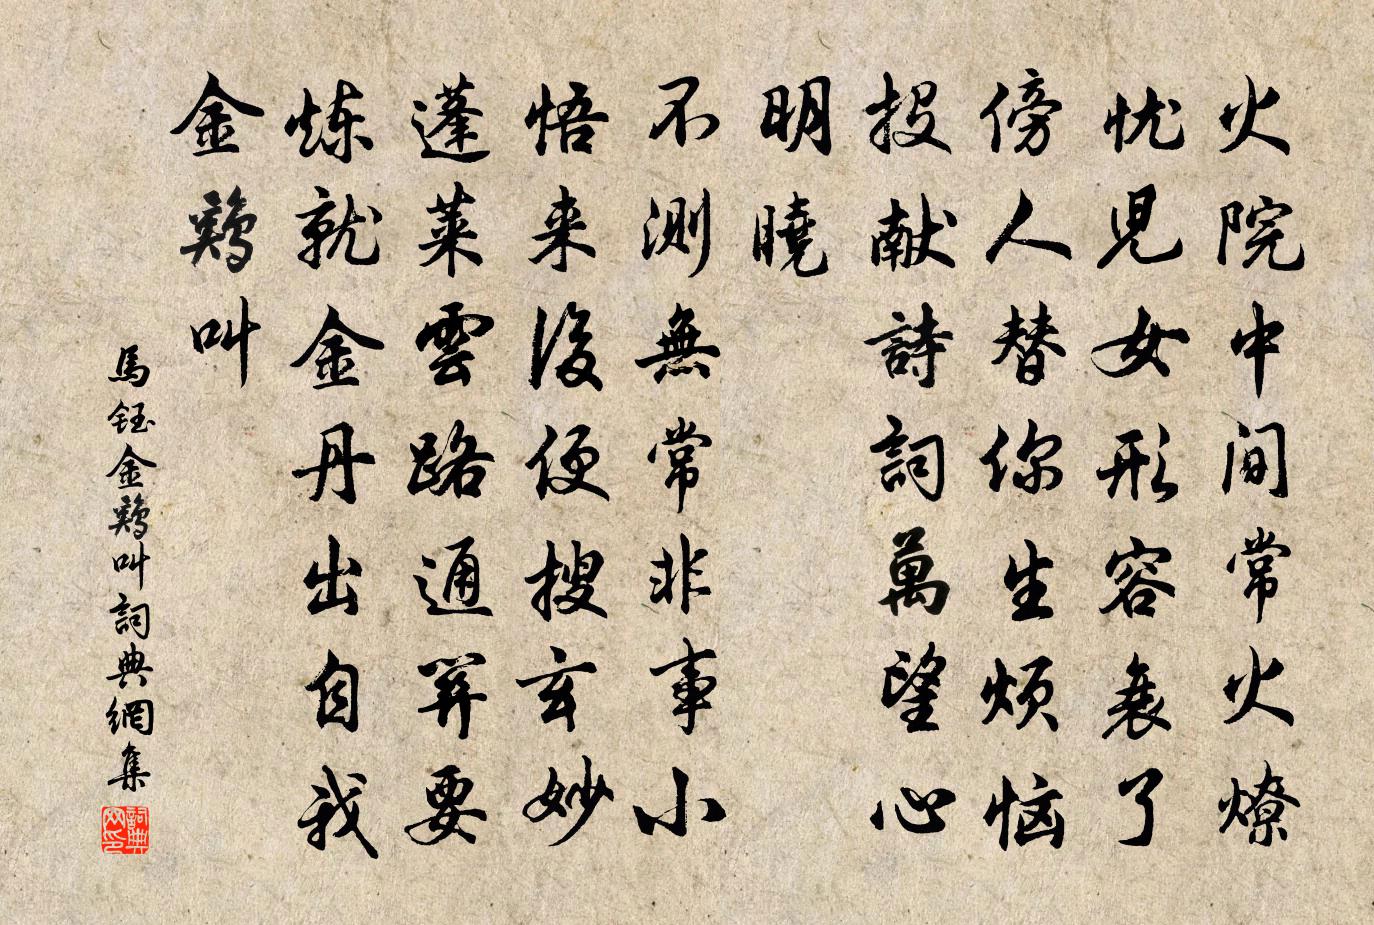 火院中間常火燎
忧児女形容衰了
傍人替你生烦恼
投献詩詞萬望心
明曉
不測無常非事小
悟来後便搜玄妙
蓬莱雲路通昇要
炼就金丹出自我
金鷄叫
馬鈺金鷄叫詞典網集
詞典網印